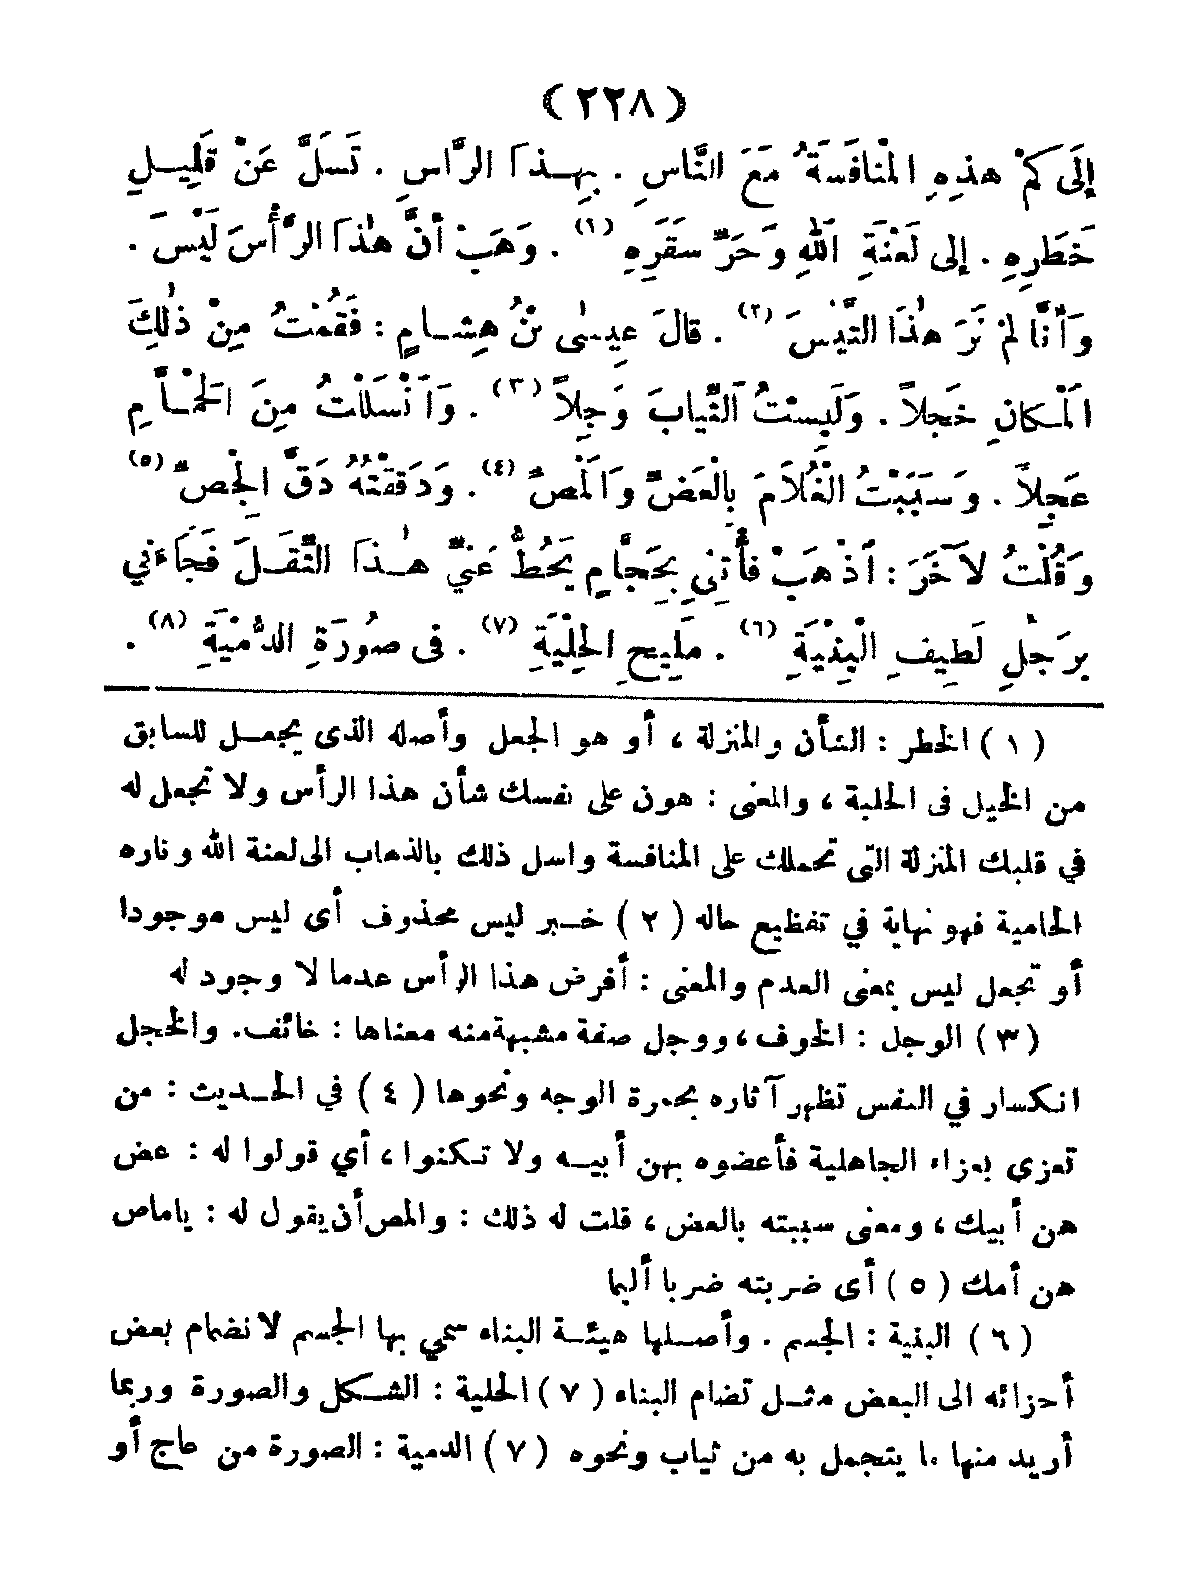 ( ٢٢٨ )
إِلَى كَمْ هذِهِ الْمُنافَسَةُ مَعَ النَّاسِ . بِهـذا الرَّاسِ . تَسَلَّ عَنْ قَلِيـلِ
خَطَرِهِ . إلى لَعْنَةِ اللهِ وَحَرِّ سَقَرِهِ (١) . وَهَبْ أَنَّ هٰذا الرَّأْسَ لَيْسَ .
وَأَنَّا لَمْ نَرَ هٰذَا التَّيْسَ (٢) . قالَ عِيسٰى بْنُ هِشـامٍ : فَقُمْتُ مِنْ ذٰلِكَ
الْمَـكانِ خَجِلاً . وَلَبِسْتُ الثِّيابَ وَجِلاً (٣) . وَانْسَلَلْتُ مِنَ الْحَمَّـامِ
عَجِلاً . وَسَبَبْتُ الْغُلاَمَ بِالْعَضِّ وَالْمَصِّ (٤) . وَدَقَقْتُهُ دَقَّ الْجِصِّ (٥)
وَقُلْتُ لآخَرَ : اذْهَبْ فَأْتِنِى بِحَجَّامٍ يَحُطُّ عَنِّي هـٰذا الثِّقَـلَ فَجَاءَنِي
بِرَجُلٍ لَطِيفِ الْبِنْيَةِ (٦) . مَلِيحِ الْحِلْيَةِ (٧) . فى صُورَةِ الدُّمْيَةِ (٨) .
( ١ ) الخطر : الشأن والمنزلة ، أو هو الجعل وأصله الذى يجعـل للسابق
من الخيل فى الحلبة ، والمعنى : هون على نفسك شأن هذا الرأس ولا تجعل له
في قلبك المنزلة التى تحملك على المنافسة واسل ذلك بالذهاب الى لعنة الله وناره
الحامية فهو نهاية في تفظيع حاله ( ٢ ) خـبر ليس محذوف أى ليس موجودا
أو تجعل ليس بمعنى العدم والمعنى : أفرض هذا الرأس عدما لا وجود له
( ٣ ) الوجل : الخوف ، ووجل صفة مشبهة منه معناها : خائف. والخجل
انـكسار في النفس تظهر آثاره بحمرة الوجه ونحوها ( ٤ ) في الحـديث : من
تعزى بعزاء الجاهلية فأعضوه بهن أبيـه ولا تـكنوا ، أي قولوا له : عض
هن أبيك ، ومعنى سببته بالعض ، قلت له ذلك : والمص أن يقول له : ياماص
هن أمك ( ٥ ) أى ضربته ضربا أليما
( ٦ ) البنية : الجسم . وأصـلها هيئـة البناء سمي بها الجسم لانضمام بعض
أجزائه الى البعض مثـل تضام البناء ( ٧ ) الحلية : الشـكل والصورة وربما
أريد منها ما يتجمل به من ثياب ونحوه ( ٧ ) الدمية : الصورة من عاج أو